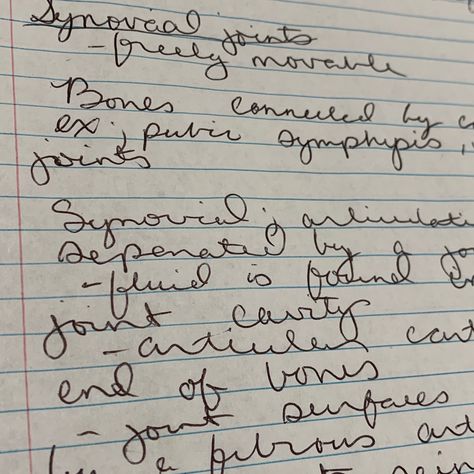 Synovial joints
- freely movable
Bones connected by
ex; pubic symphysis,
joints
Synovial;
separated by a
- fluid is found
joint cavity
- articular
end of bones
- joint surfaces
a fibrous